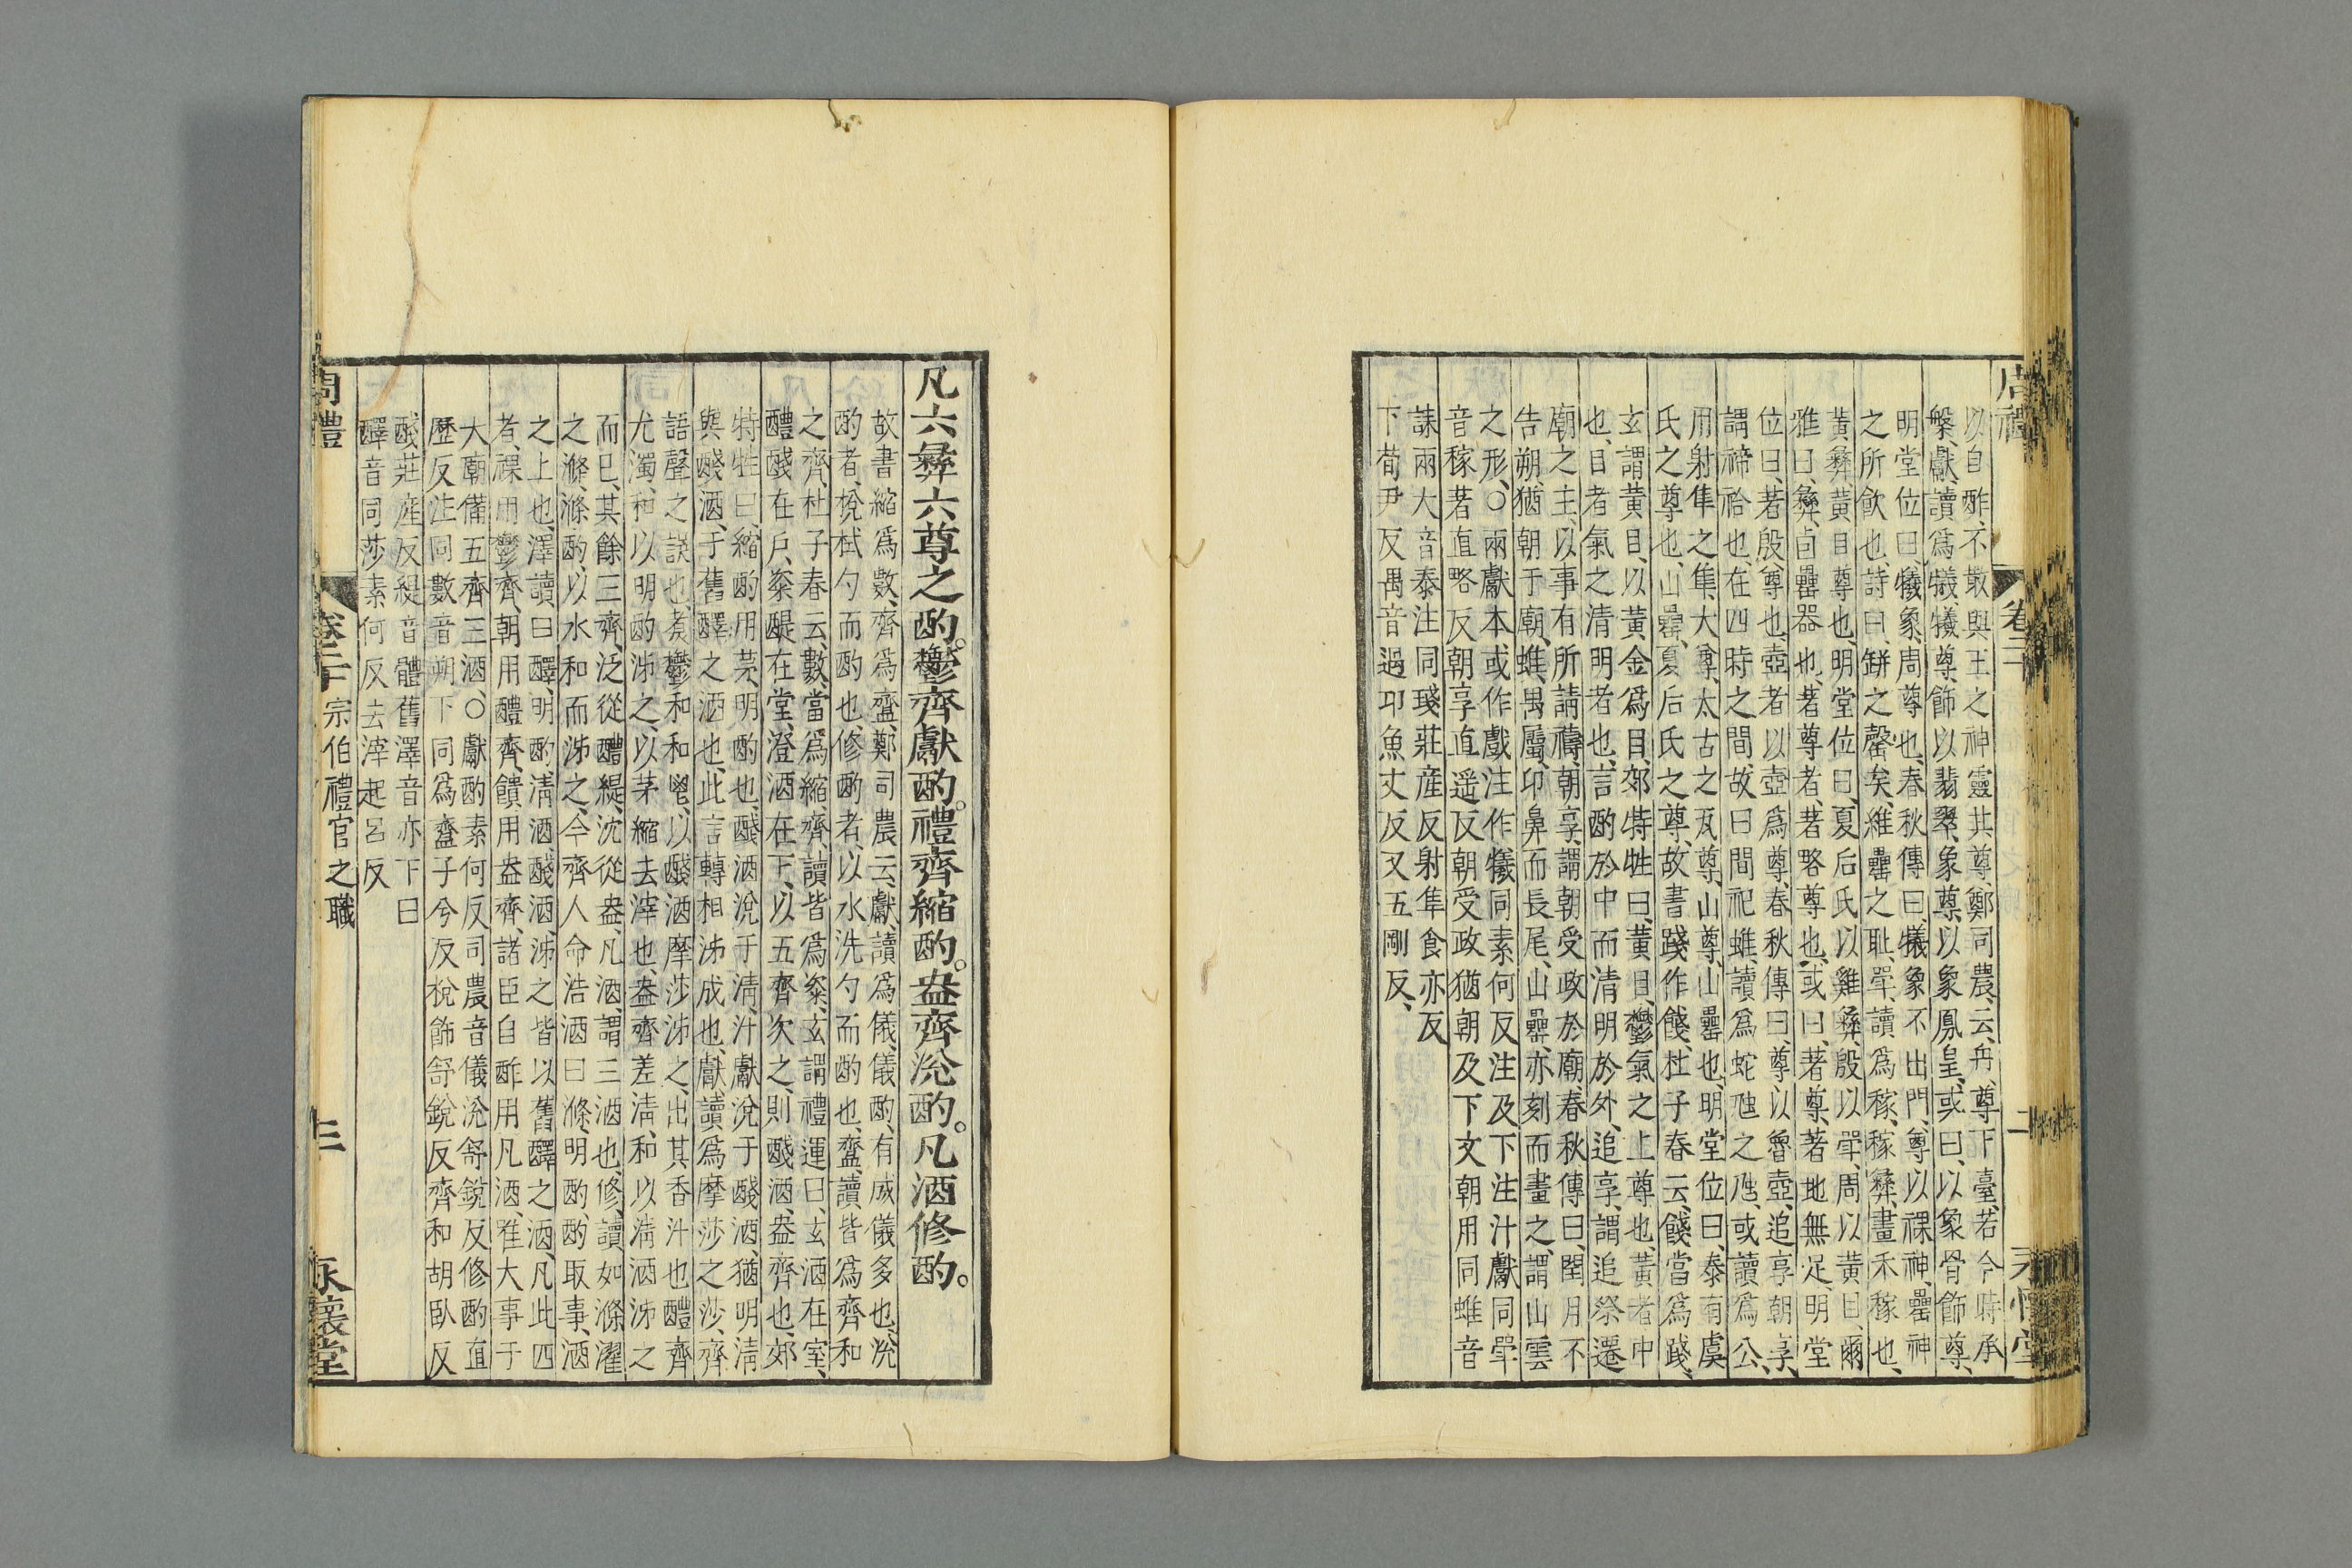 周禮
卷二十
二
永懷堂
以自酢不敢與王之神靈共尊鄭司農云舟尊下臺若今時承
槃獻讀爲犧犧尊飾以翡翠象尊以象鳳皇或曰以象骨飾尊
明堂位曰犧象周尊也春秋傳曰犧象不出門尊以祼神罍神
之所飲也詩曰缾之罄矣維罍之耻斝讀爲稼稼彝畫禾稼也
黃彝黃目尊也明堂位曰夏后氏以雞彝殷以斝周以黃目爾
雅曰彝卣罍器也著尊者著略尊也或曰著尊著地無足明堂
位曰著殷尊也壺者以壺爲尊春秋傳曰尊以魯壺追享朝享
謂禘祫也在四時之間故曰間祀蜼讀爲蛇虺之虺或讀爲公
用射隼之隼大尊太古之瓦尊山尊山罍也明堂位曰泰有虞
氏之尊也山罍夏后氏之尊故書踐作餞杜子春云餞當爲踐
玄謂黃目以黃金爲目郊特牲曰黃目鬱氣之上尊也黃者中
也目者氣之清明者也言酌於中而清明於外追享謂追祭遷
廟之主以事有所請禱朝享謂朝受政於廟春秋傳曰閏月不
告朔猶朝于廟蜼禺屬卬鼻而長尾山罍亦刻而畫之謂山雲
之形○兩獻本或作戲注作犧同素何反注及下注汁獻同斝
音稼著直略反朝享直遥反朝受政猶朝及下文朝用同蜼音
誄兩大音泰注同踐莊産反射隼食亦反
下荀尹反禺音遇卬魚丈反又五剛反
凡六彝六尊之酌。鬱齊獻酌。禮齊縮酌。盎齊涗酌。凡酒修酌。
故書縮爲數齊爲齍鄭司農云獻讀爲儀儀酌有威儀多也涗
酌者梲拭勺而酌也修酌者以水洗勺而酌也齍讀皆爲齊和
之齊杜子春云數當爲縮齊讀皆爲粢玄謂禮運曰玄酒在室
醴醆在戶粢醍在堂澄酒在下以五齊次之則醆酒盎齊也郊
特牲曰縮酌用茅明酌也醆酒涗于清汁獻涗于醆酒猶明清
與醆酒于舊醳之酒也此言轉相泲成也獻讀爲摩莎之莎齊
語聲之誤也煮鬱和和鬯以醆酒摩莎泲之出其香汁也醴齊
尤濁和以明酌泲之以茅縮去滓也盎齊差清和以清酒泲之
而已其餘三齊泛從醴緹沈從盎凡酒謂三酒也修讀如滌濯
之滌滌酌以水和而泲之今齊人命浩酒曰滌明酌酌取事酒
之上也澤讀曰醳明酌清酒醆酒泲之皆以舊醳之酒凡此四
者祼用鬱齊朝用醴齊饋用盎齊諸臣自酢用凡酒唯大事于
大廟備五齊三酒○獻酌素何反司農音儀涗舒銳反修酌直
歷反注同數音朔下同爲齍子兮反梲飾舒銳反齊和胡臥反
醆莊産反緹音體舊澤音亦下曰
醳音同莎素何反去滓起呂反
周禮
卷二十
宗伯禮官之職
三
永懷堂